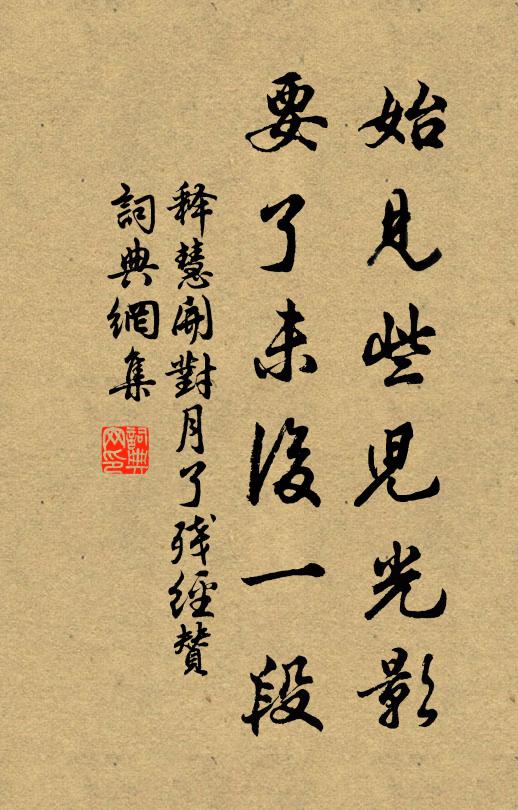 始見些兒光影
要了末後一段
释慧開對月了残經賛
詞典網集
詞典網印